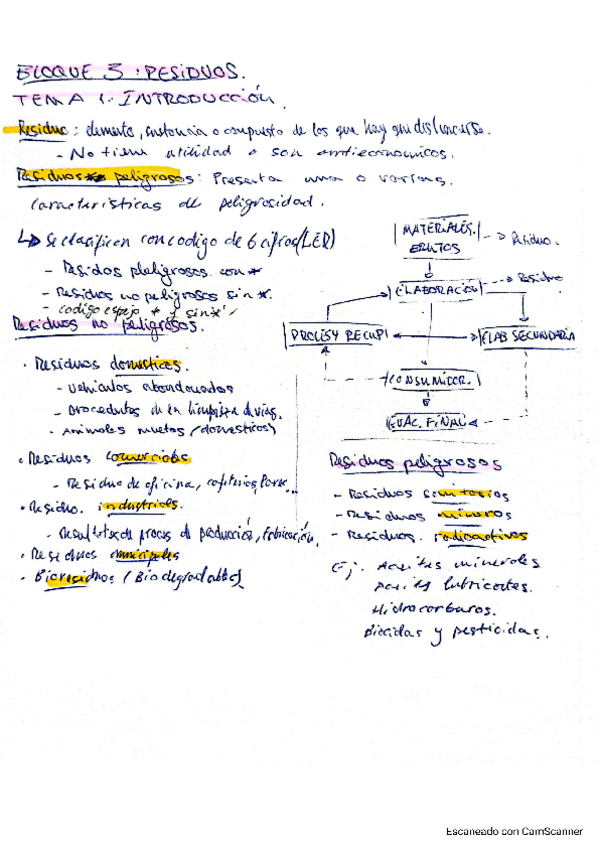 BLOQUE 3: RESIDUOS.
TEMA 1. INTRODUCCIÓN.
Residuo: elemento, sustancia o compuesto de los que hay que
- No tiene utilidad o son antieconomicos.
Residuos peligrosos: Presenta una o varias
características de peligrosidad.
↳ Se clasifican con codigo de 6 cifras (LER)
- Residos peligrosos con *
- Residuos no peligrosos sin *.
- codigo espejo * y sin *
Residuos no peligrosos.
· Residuos domesticos.
- Vehiculos abandonados
- Procedentes de la limpieza de vias.
- Animales muertos (domesticos)
· Residuos comerciales
- Residuo de oficina, cafeterias,
· Residuo. industriales
- de proces de producción, fabricación.
· Residuos municipales
· Bioresiduos (Biodegradables)
MATERIALES BRUTOS
Residuo.
ELABORACIÓN
Residuo
PROCES Y RECUP
ELAB SECUNDARIA
CONSUMIDOR.
EVAC. FINAL
Residuos peligrosos
- Residuos sanitarios
- Residuos mineros
- Residuos. radioactivos
Ej: Aceites minerales
Aceites lubricantes.
Hidrocarburos.
Biocidas y pesticidas.
Escaneado con CamScanner